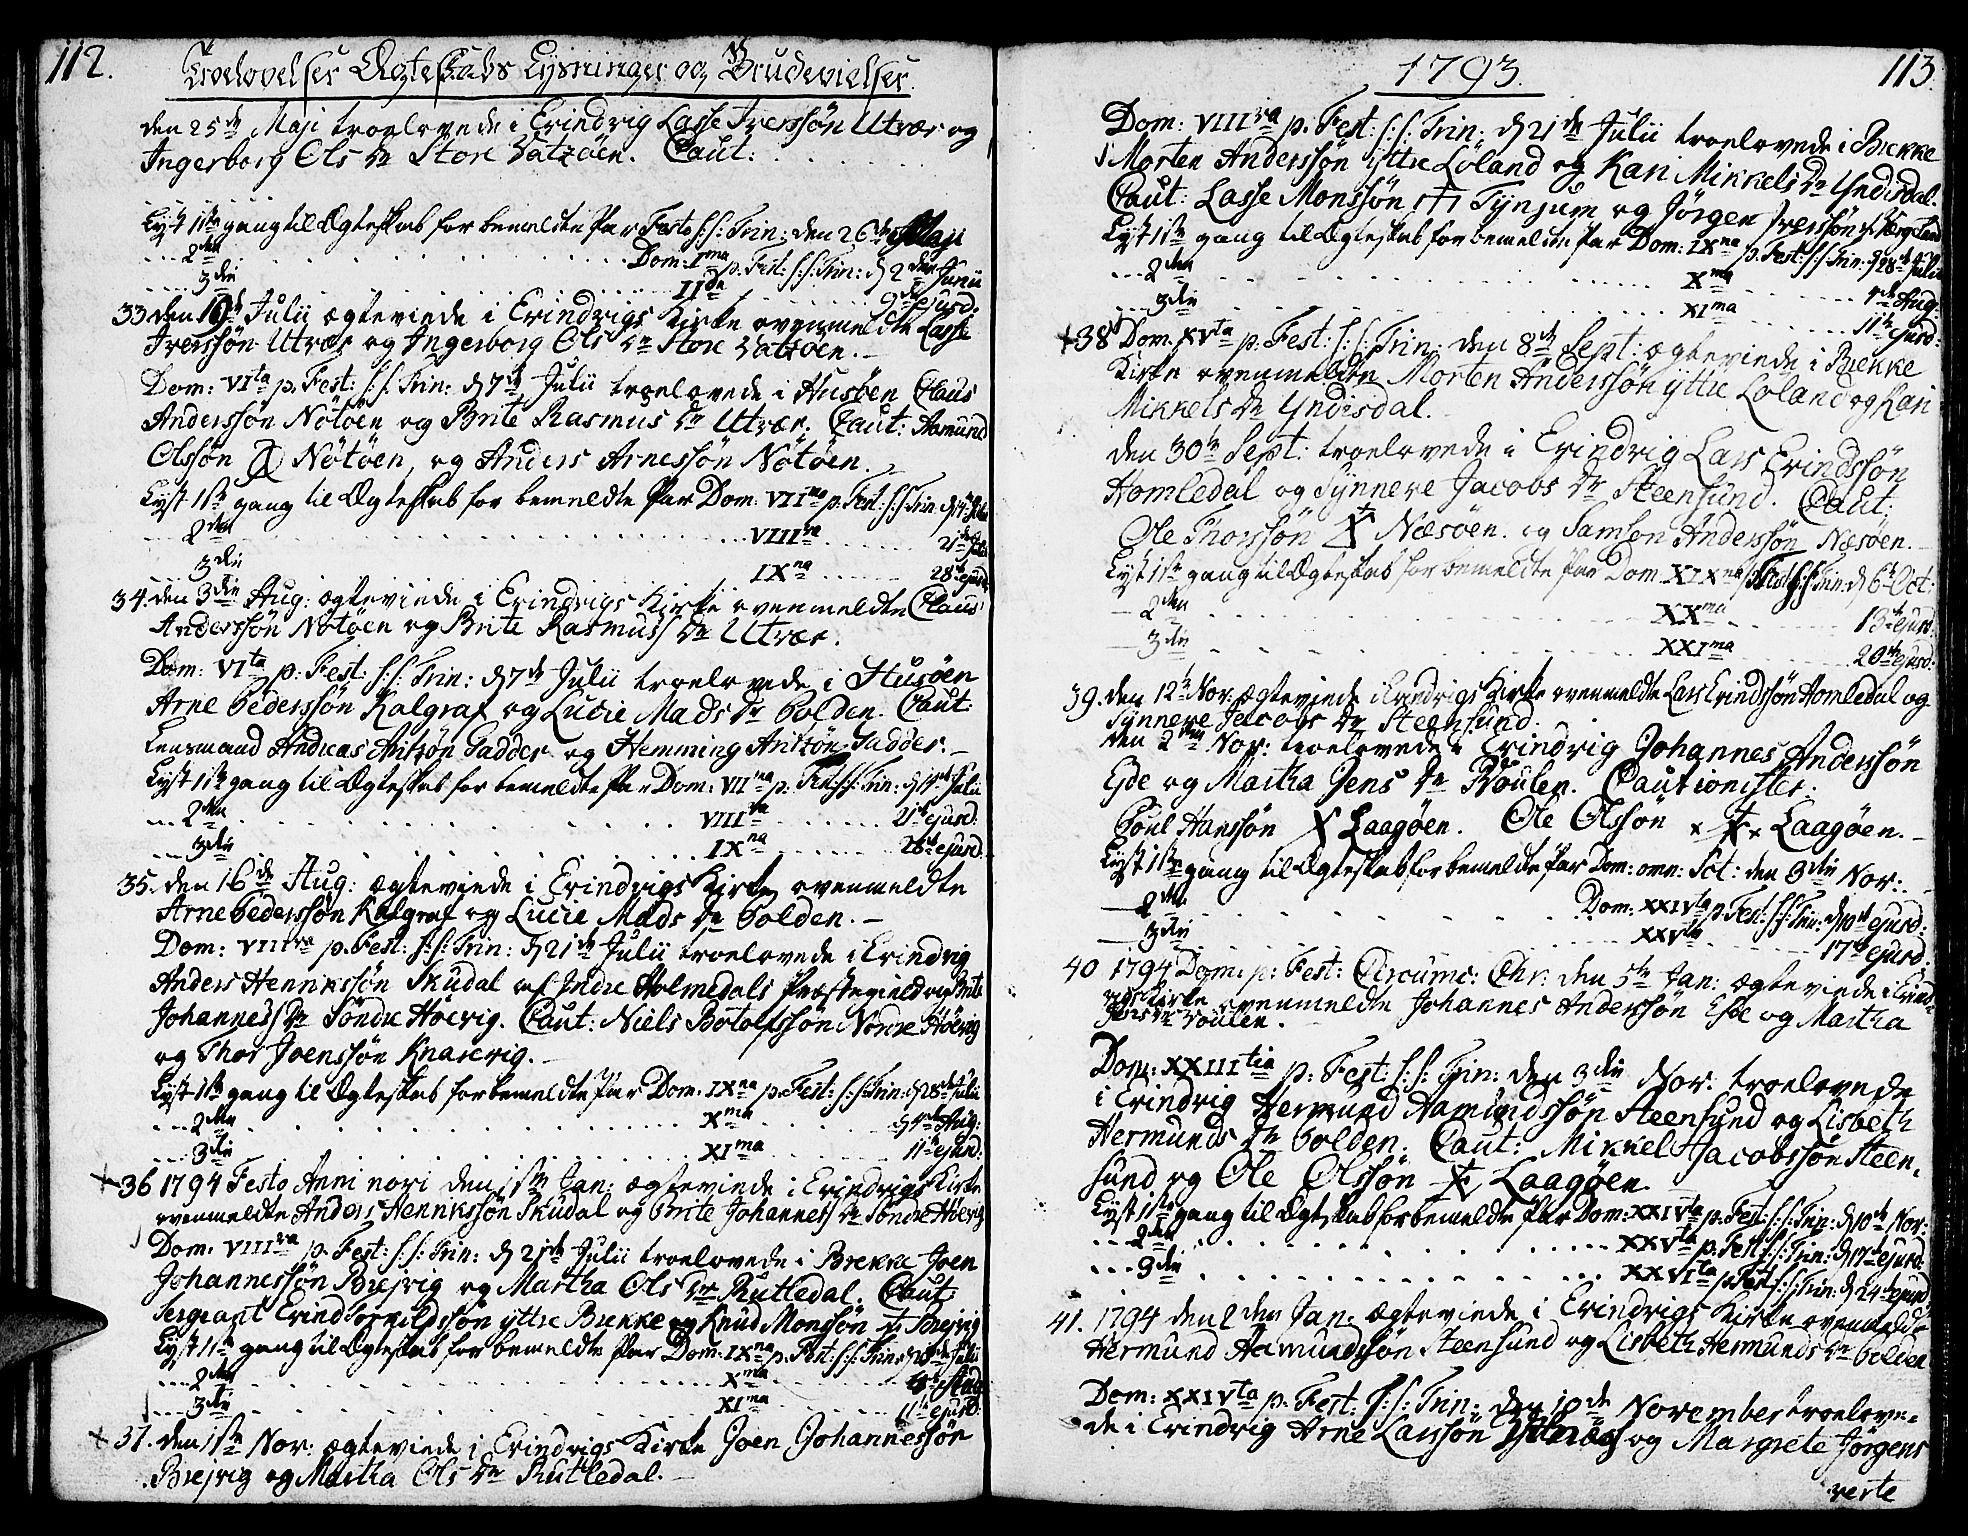 112. Troelovelser Ægteskabs Lysninger og Brudevielser.
den 25de Maji troelovede i Evindvig Lasse Iversøn Utvær og
Ingerborg Ols Dr Store Batzøen. Caut: . . . . . . .
Lyst 1ste gang til Ægteskab for bemeldte Par Festo S: S: Trin: den 26de Maji
2den . . . . . Dom: Ima p: Fest: S: S: Trin: d 2den Junii
3die . . . . . IIda . . . . . 9de ejusd:
33. den Julii ægteviede i Evindvigs Kirke ovenmeldte Lasse
Iversøn Utvær og Ingerborg Ols Dr Store Batzøen. —
Dom: VIta p: Fest: S: S: Trin: d 7de Julii troelovede i Husøen Claus
Anderssøn Nötöen og Brite Rasmus Dr Utvær. Caut: Aamund
Olssøn Nötöen, og Anders Arnessøn Nötöen.
Lyst 1ste gang til Ægteskab for bemeldte Par Dom: VIIma p: Fest: S: S: Trin: d 14de Julii
2den . . . . . VIIIva . . . . . 21de Julii
3die . . . . . IXna . . . . . 28de ejusd:
34. den 3die Aug: ægteviede i Evindvigs Kirke ovenmeldte Claus
Anderssøn Nötöen og Brite Rasmus Dr Utvær.
Dom: VIta p: Fest: S: S: Trin: d 7de Julii troelovede i Husøen
Arne Pederssøn Kalgraf og Lucie Mads Dr Polden. Caut:
Lensmand Andreas Antzøn Gadder og Hemming Antzøn Gadder. —
Lyst 1ste gang til Ægteskab for bemeldte Par Dom: VIIma p: Fest: S: S: Trin: d 14de Julii
2den . . . . . VIIIva . . . . . 21de ejusd:
3die . . . . . IXna . . . . . 28de ejusd:
35. den 16de Aug: ægteviede i Evindvigs Kirke ovenmeldte
Arne Pederssøn Kalgraf og Lucie Mads Dr Polden. —
Dom: VIIIva p: Fest: S: S: Trin: d 21de Julii troelovede i Evindvig
Anders Henrikssøn Skudal af Indre Holmedals Præstegield og Brite
Johannes Dr Söndre Höevig. Caut: Niels Botolfssøn Nordre Höevig
og Thor Joenssøn Knarvig. —
Lyst 1ste gang til Ægteskab for bemeldte Par Dom: IXna p: Fest: S: S: Trin: d 28de Julii
2den . . . . . Xma . . . . . d 4de Aug:
3die . . . . . XIma . . . . . 11te ejusd:
36 1794 Festo Anni novi den 1ste Jan: ægteviede i Evindvigs Kirke
ovenmeldte Anders Henrikssøn Skudal og Brite Johannes Dr Söndre Höevig
Dom: VIIIva p: Fest: S: S: Trin: d 21de Julii troelovede i Brekke Joen
Johannessøn Brejvig og Martha Ols Dr Rutledal. Caut:
Sergeant Erind yttre Brekke og Knud Monssøn Brejvig
Lyst 1ste gang til Ægteskab for bemeldte Par Dom: IXna p: Fest: S: S: Trin: d 28de Julii
2den . . . . . Xma . . . . . 4de Aug:
3die . . . . . XIma . . . . . 11te ejusd:
37. den 1ste Nov: ægteviede i Evindvigs Kirke Joen Johannessøn
Brejvig og Martha Ols Dr Rutledal. —
1793. 113.
Dom: VIIIva p: Fest: S: S: Trin: d 21de Julii troelovede i Brekke
Morten Anderssøn yttre Löland og Kari Mikkels Dr Yndisdal.
Caut: Lasse Monssøn Tynjum og Jörgen Iverssøn
Lyst 1ste gang til Ægteskab for bemeldte Par Dom: IXna p: Fest: S: S: Trin: d 28de Julii
2den . . . . . Xma . . . . . 4de Aug:
3die . . . . . XIma . . . . . 11te ejusd:
38 Dom: XVta p: Fest: S: S: Trin: den 8de Sept: ægteviede i Brekke
Kirke ovenmeldte Morten Anderssøn yttre Löland og Kari
Mikkels Dr Yndisdal.
den 30te Sept: troelovede i Evindvig Lars Erindssøn
Homledal og Synneve Jacobs Dr Steensund. Caut:
Ole Thorssøn Næsöen. og Samson Anderssøn Næsöen. —
Lyst 1ste gang til Ægteskab for bemeldte Par Dom XIXna p: Fest: S: S: Trin: d 6te Oct:
2den . . . . . XXma . . . . . 13de ejusd:
3die . . . . . XXIma . . . . . 20de ejusd:
39. den 12te Nov: ægteviede i Evindvigs Kirke ovenmeldte Lars Erindssøn Homledal og
Synneve Jacobs Dr Steensund.
den 2den Nov: troelovede i Evindvig Johannes Anderssøn
Eide og Martha Jens Dr Böulen. Cautionister:
Poul Hanssøn Laagöen. Ole Olssøn Laagöen. —
Lyst 1ste gang til Ægteskab for bemeldte Par Dom: omn: Sct: den 3die Nov:
2den . . . . . Dom: XXIVta p: Fest: S: S: Trin: d 10de ejusd:
3die . . . . . XXVta . . . . . 17de ejusd:
40 1794 Dom: p: Fest: Circumc: Chr: den 5te Jan: ægteviede i Evind-
vigs Kirke ovenmeldte Johannes Anderssøn Eide og Martha
Jens Dr Böulen.
Dom: XXIIItia p: Fest: S: S: Trin: den 3die Nov: troelovede
i Evindvig Hermund Aamundssøn Steensund og Lisbeth
Hermunds Dr Polden. Caut: Mikkel Jacobssøn Steen-
sund og Ole Olssøn Laagöen.
Lyst 1ste gang til Ægteskab for bemeldte Par Dom: XXIVta p: Fest: S: S: Trin: d 10de Nov:
2den . . . . . XXVta p: Fest: S: S: Trin: d 17de ejusd:
3die . . . . . XXVIta p: Fest: S: S: Trin: d 24de ejusd
41. 1794 den 2den Jan: ægteviede i Evindvigs Kirke ovenmeldte
Hermund Aamundssøn Steensund og Lisbeth Hermunds Dr Polden
Dom: XXIVta p: Fest: S: S: Trin: den 10de November troelove=
de i Evindvig Arne Larssøn og Margrete Jörgens
verte